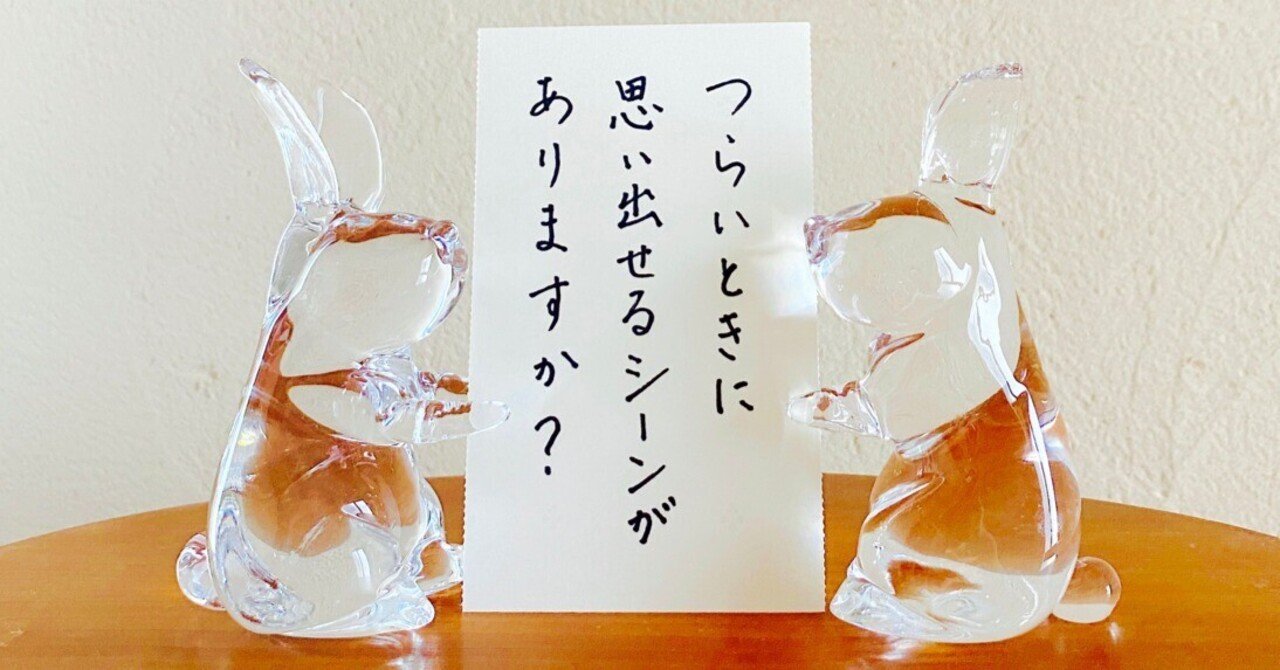 つらいときに
思い出せるシーンが
ありますか?